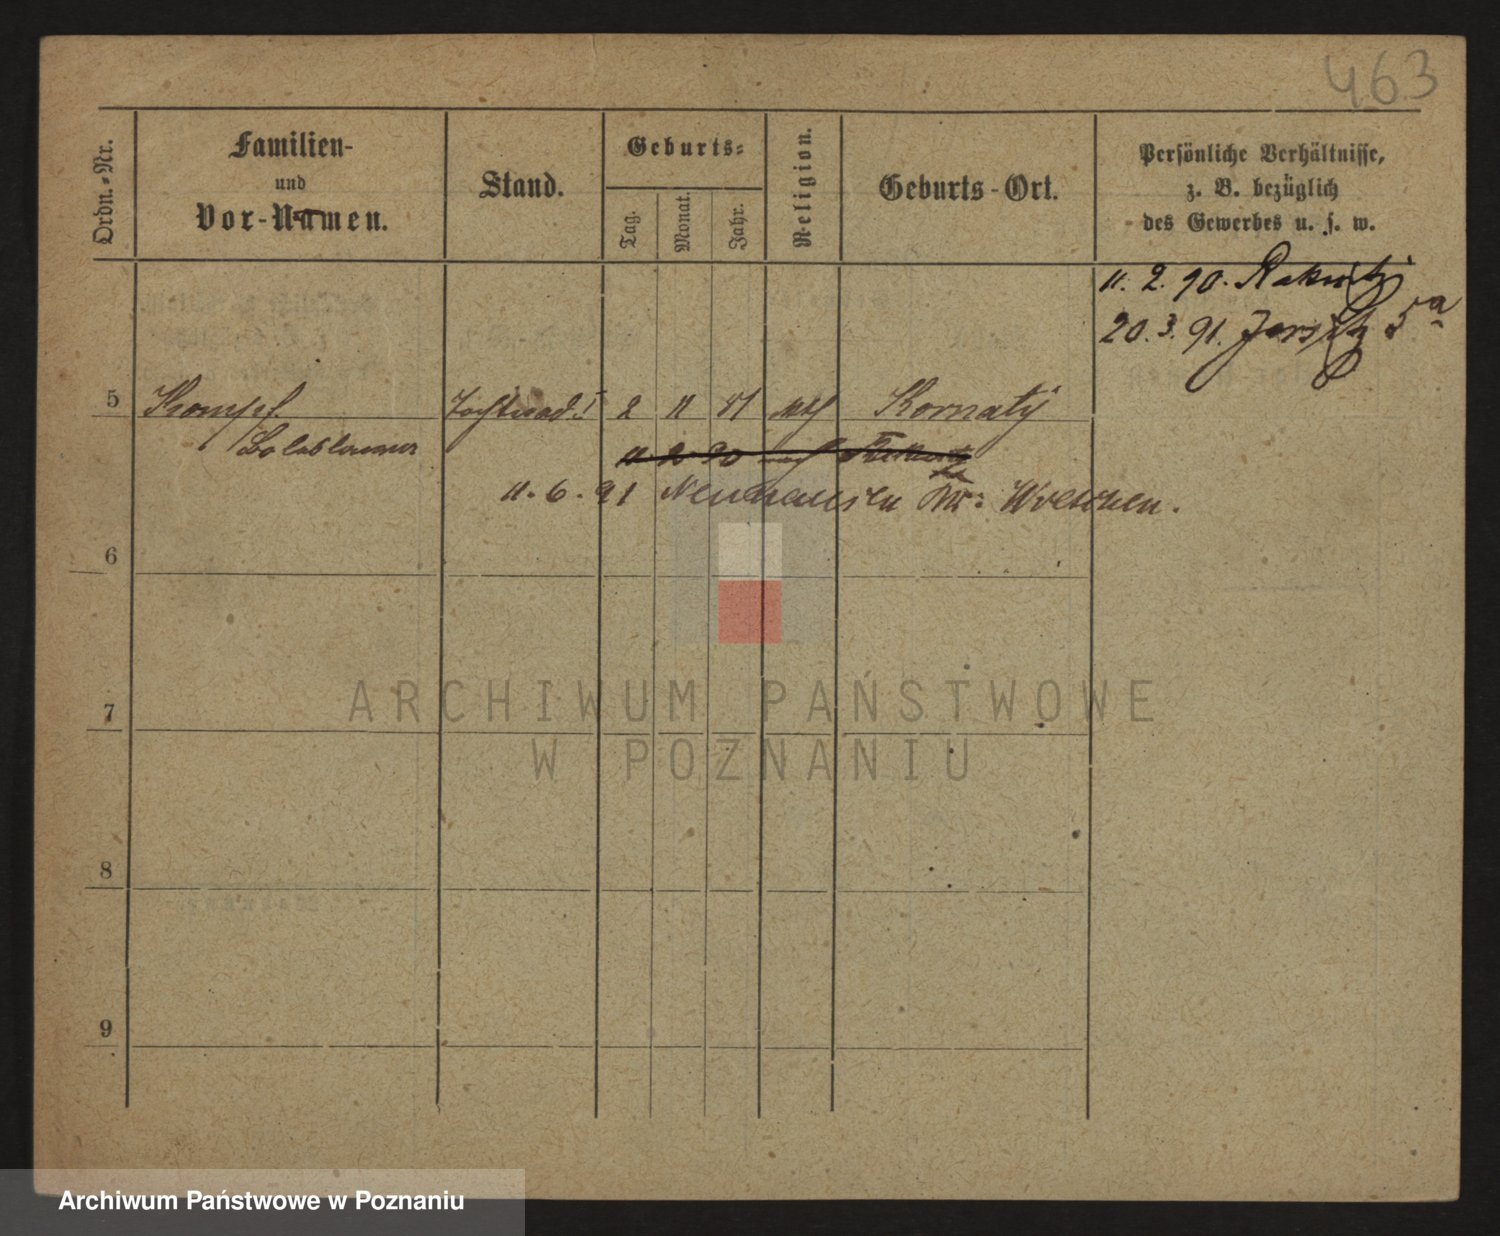 463
Ordn.-Nr.
Familien-
und
Vor-Namen.
Stand.
Geburts-
Tag.
Monat.
Jahr.
Religion.
Geburts-Ort.
Persönliche Verhältnisse,
z. B. bezüglich
des Gewerbes u. s. w.
11. 2. 90. Rakwitz
20. 3. 91. Jersitz 5a
5 2 11 81
11 2 90
11. 6. 91 Neuhausen Kr: Wreschen.
6
7
8
9
ARCHIWUM PAŃSTWOWE
W POZNANIU
Archiwum Państwowe w Poznaniu